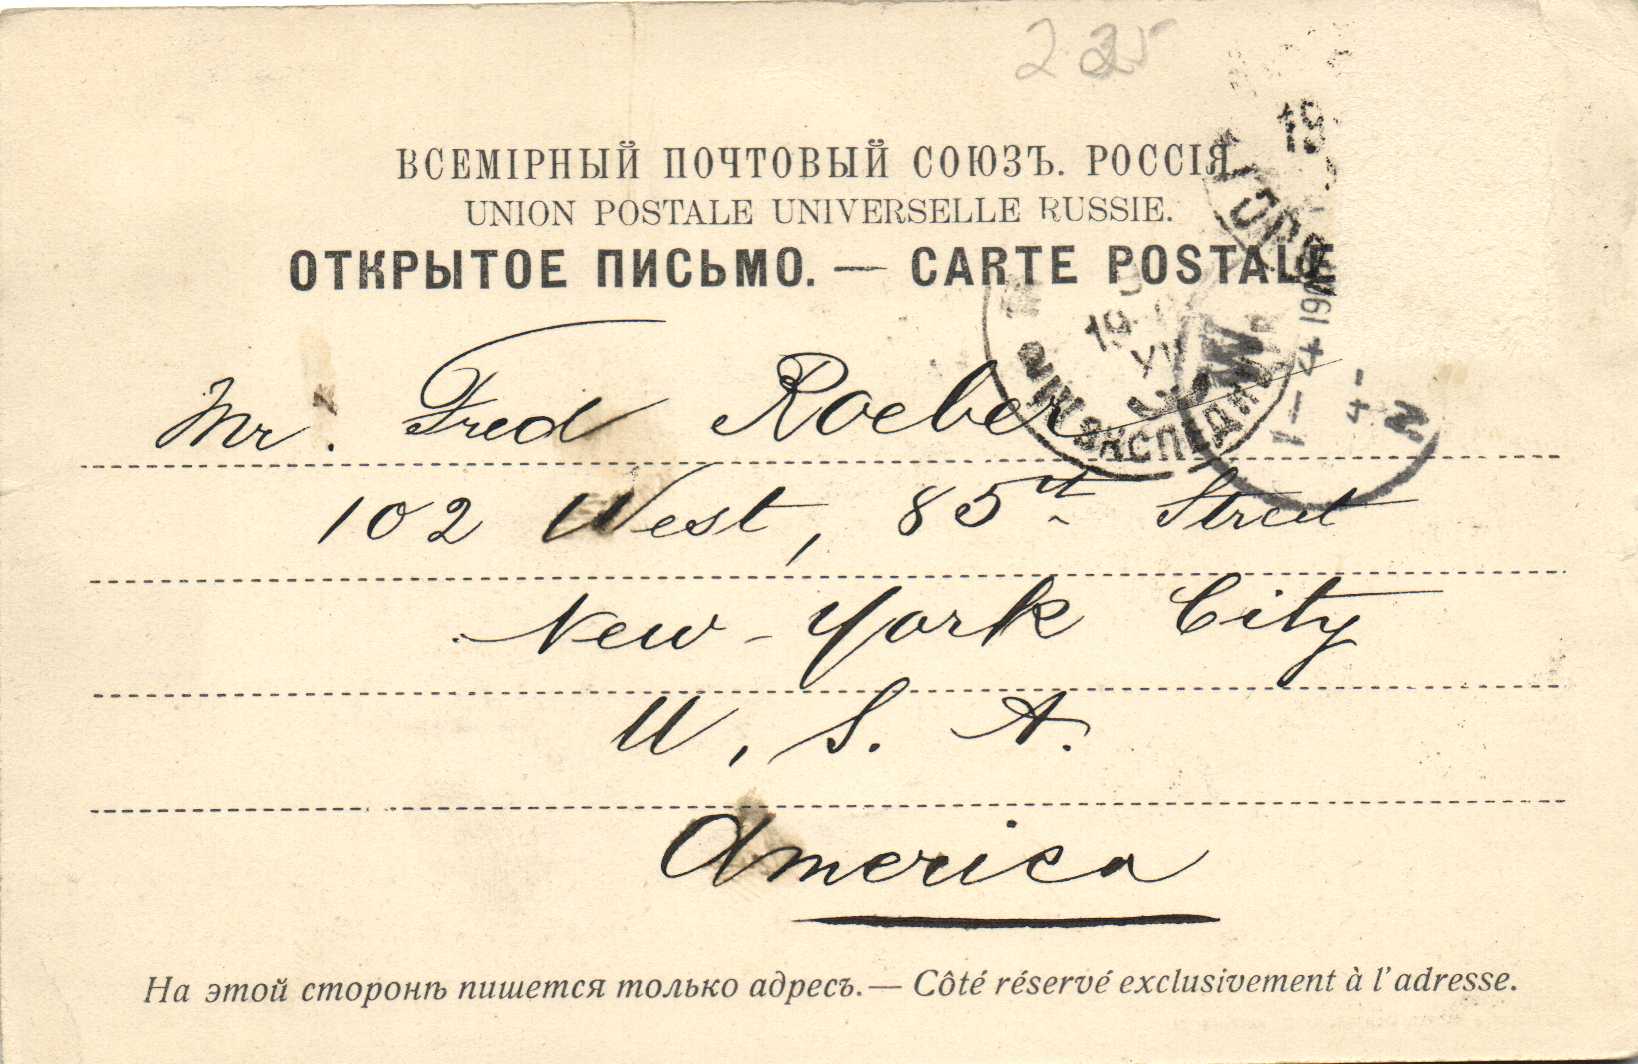 ВСЕМІРНЫЙ ПОЧТОВЫЙ СОЮЗЪ. РОССІЯ.
UNION POSTALE UNIVERSELLE RUSSIE.
ОТКРЫТОЕ ПИСЬМО. — CARTE POSTALE
Mr. Fred Roeber
102 West, 85th Street
New-York City
U. S. A.
America
На этой сторонѣ пишется только адресъ. — Côté réservé exclusivement à l'adresse.